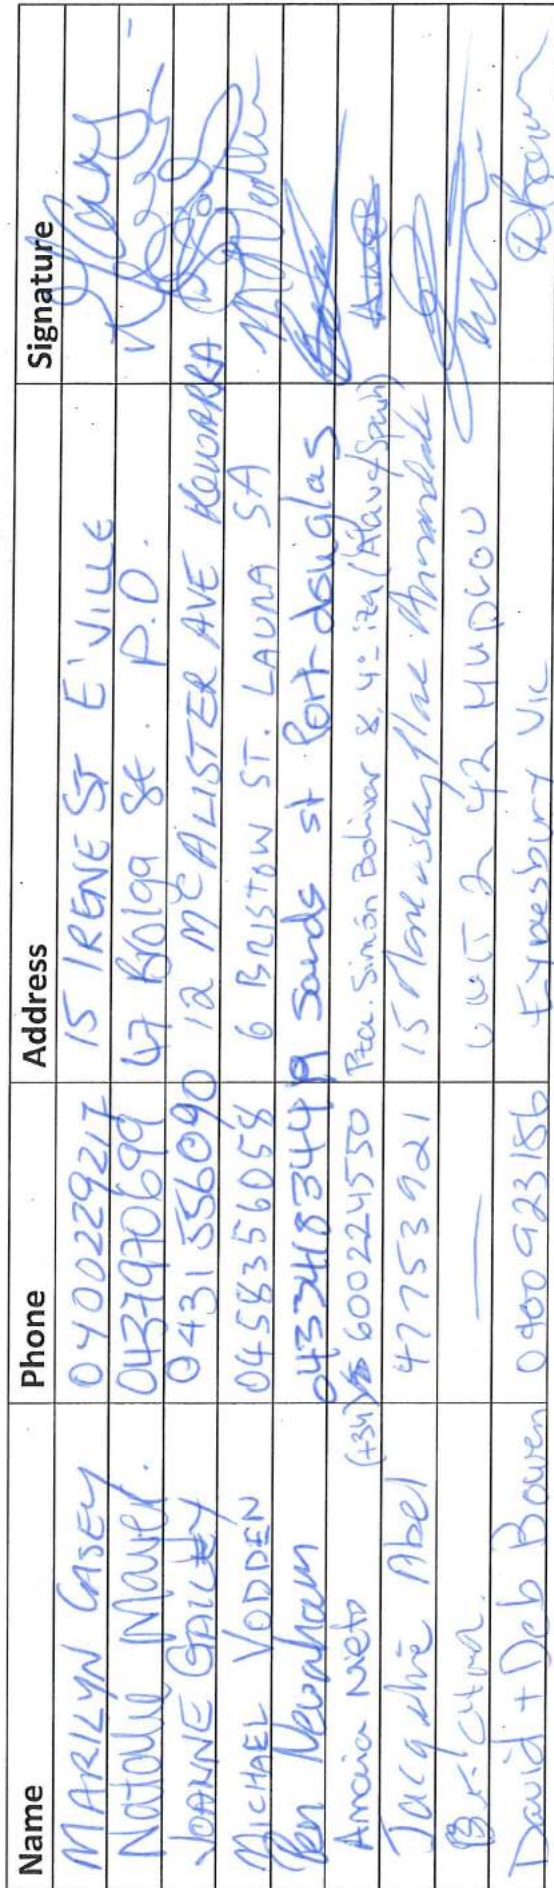 Name Phone Address Signature
MARILYN CASEY 0400229217 15 IRENE ST E'VILLE
Natalie 0437970699 47 Brolga St P.O.
JOANNE GAILEY 0431556090 12 McALISTER AVE KEWARRA
MICHAEL VODDEN 0458356058 6 BRISTOW ST. LAURA SA
Ben Newnham 0433483449 19 Sands st Port douglas
Amaia Nieto (+34) 600224550 Pza. Simón Bolivar 8, 4º izq (Alava/Spain)
Jacquie Abel 47753921 15 Annandale
— UNIT 2 42
David + Deb Bowen 0400923186 Eynesbury VIC